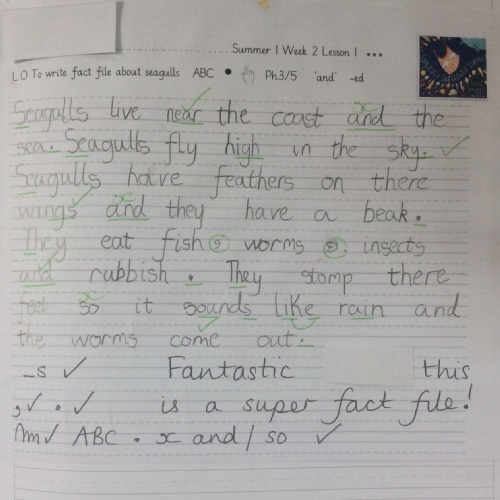 Summer 1 Week 2 Lesson 1 •••
LO To write fact file about seagulls ABC • Ph3/5 'and' -ed
Seagulls live near the coast and the
sea. Seagulls fly high in the sky. ✓
Seagulls have feathers on there
wings and they have a beak.
They eat fish, worms, insects
and rubbish. They stomp there
feet so it sounds like rain and
the worms come out.
-s ✓ Fantastic this
,✓ . ✓ is a super fact file!
✓ ABC . x and/so ✓